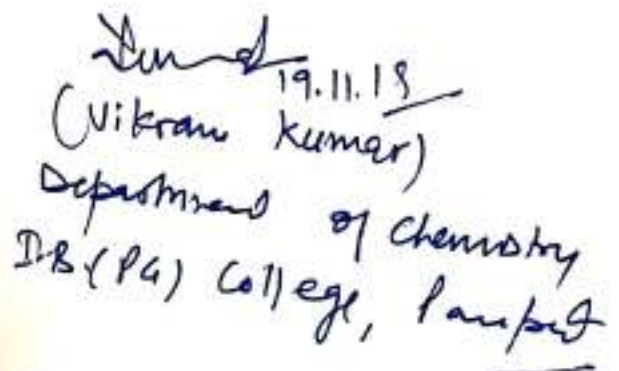 19.11.19
(Vikram Kumar)
Department of Chemistry
I.B. (PG) College, Panipat